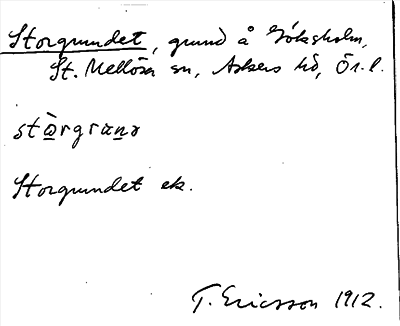 Storgrundet, grund å Göksholm,
St. Mellösa sn, Askers hd, Ör. l.
stò̲rgran̲ə
Storgrundet ek.
T. Ericsson 1912.